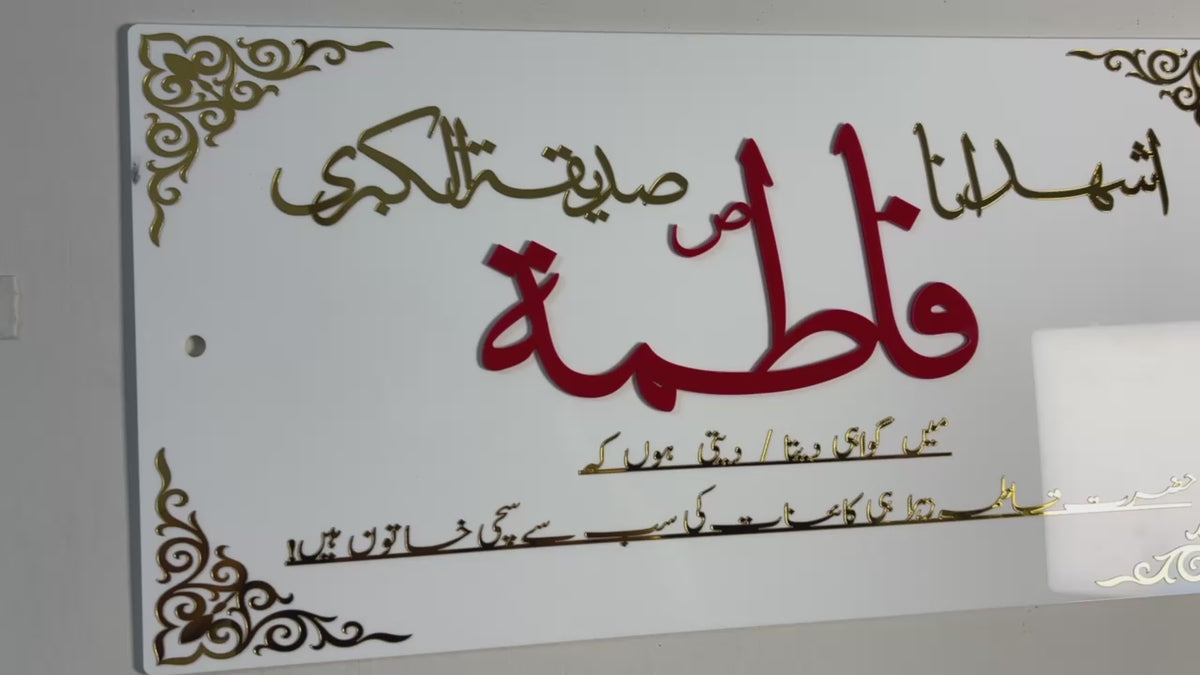 اشھدانا فاطمة ص صدیقة الکبری
میں گواہی دیتا / دیتی ہوں کہ
حضرت فاطمہ زہرا ہی کائنات کی سب سے سچی خاتون ہیں!